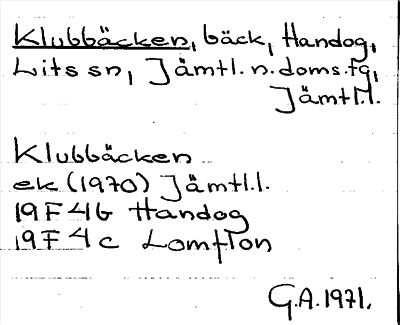 Klubbäcken, bäck, Handog,
Lits sn, Jämtl. n. doms. fg,
Jämtl.l.
Klubbäcken
ek (1970) Jämtl.l.
19F 4b Handog
19F 4c Lomtton
G.A. 1971.